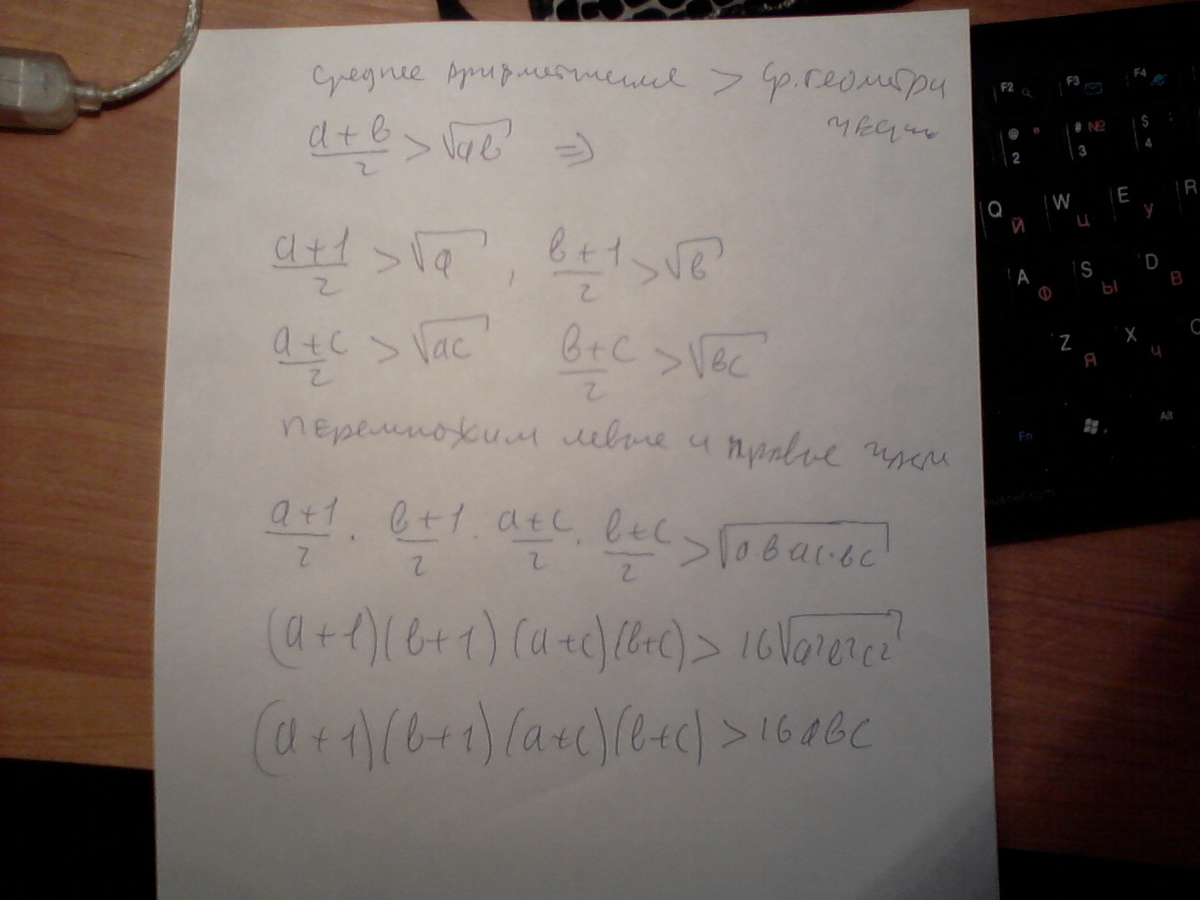 среднее арифметическое > ср. геометри
ческ
a+b/2 > √ab ⇒
a+1/2 > √a , b+1/2 > √b
a+c/2 > √ac b+c/2 > √bc
перемножим левые и правые части
a+1/2 · b+1/2 · a+c/2 · b+c/2 > √ab ac·bc
(a+1)(b+1)(a+c)(b+c) > 16√a²b²c²
(a+1)(b+1)(a+c)(b+c) > 16abc
F2 F3 F4
@ 2 # № 3 $ ; 4
Q Й W Ц E У R
A Ф S Ы D В
Z Я X Ч C
Fn Alt